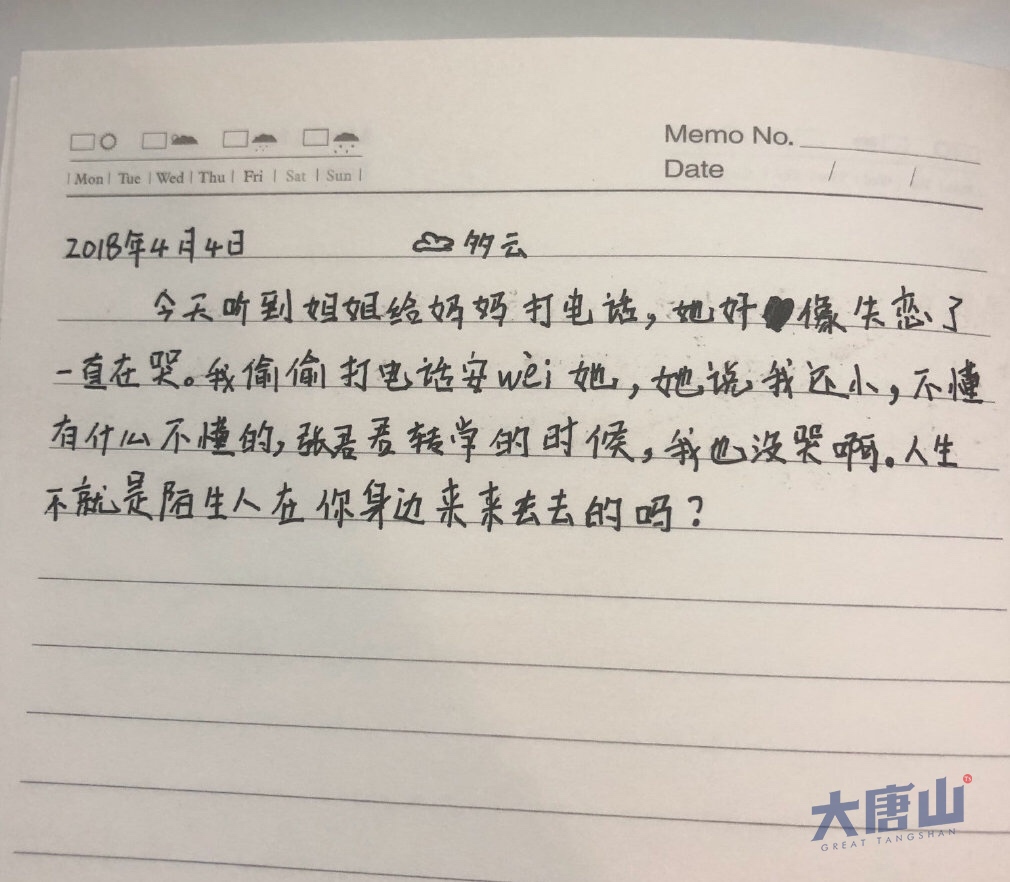 Memo No.
Mon Tue Wed Thu Fri Sat Sun
Date / /
2018年4月4日 多云
今天听到姐姐给妈妈打电话,她好像失恋了
一直在哭。我偷偷打电话安wèi她,她说我还小,不懂
有什么不懂的,张君君转学的时候,我也没哭啊。人生
不就是陌生人在你身边来来去去的吗?
大唐山
GREAT TANGSHAN